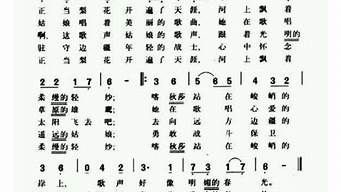 正当梨花开遍了天涯，河上飘着
姑娘唱着美丽的歌曲，她在歌唱
啊，这歌声姑娘的歌声，跟着光明的
驻守边疆年轻的战士，心中怀念
正当梨花开遍了天涯，河上飘着
2 2 1 7 6 - 3 6 5 6 5
柔漫的轻纱；喀秋莎站在峻峭的
草原的雄鹰；她在歌唱心爱的
太阳飞去吧；去向远方边疆的
遥远的姑娘；勇敢战斗保卫
柔漫的轻纱；喀秋莎站在峻峭的
3 6 0 4 2 3. 1 7 3 1 7 6 -
岸上，歌声好像明媚的春光。